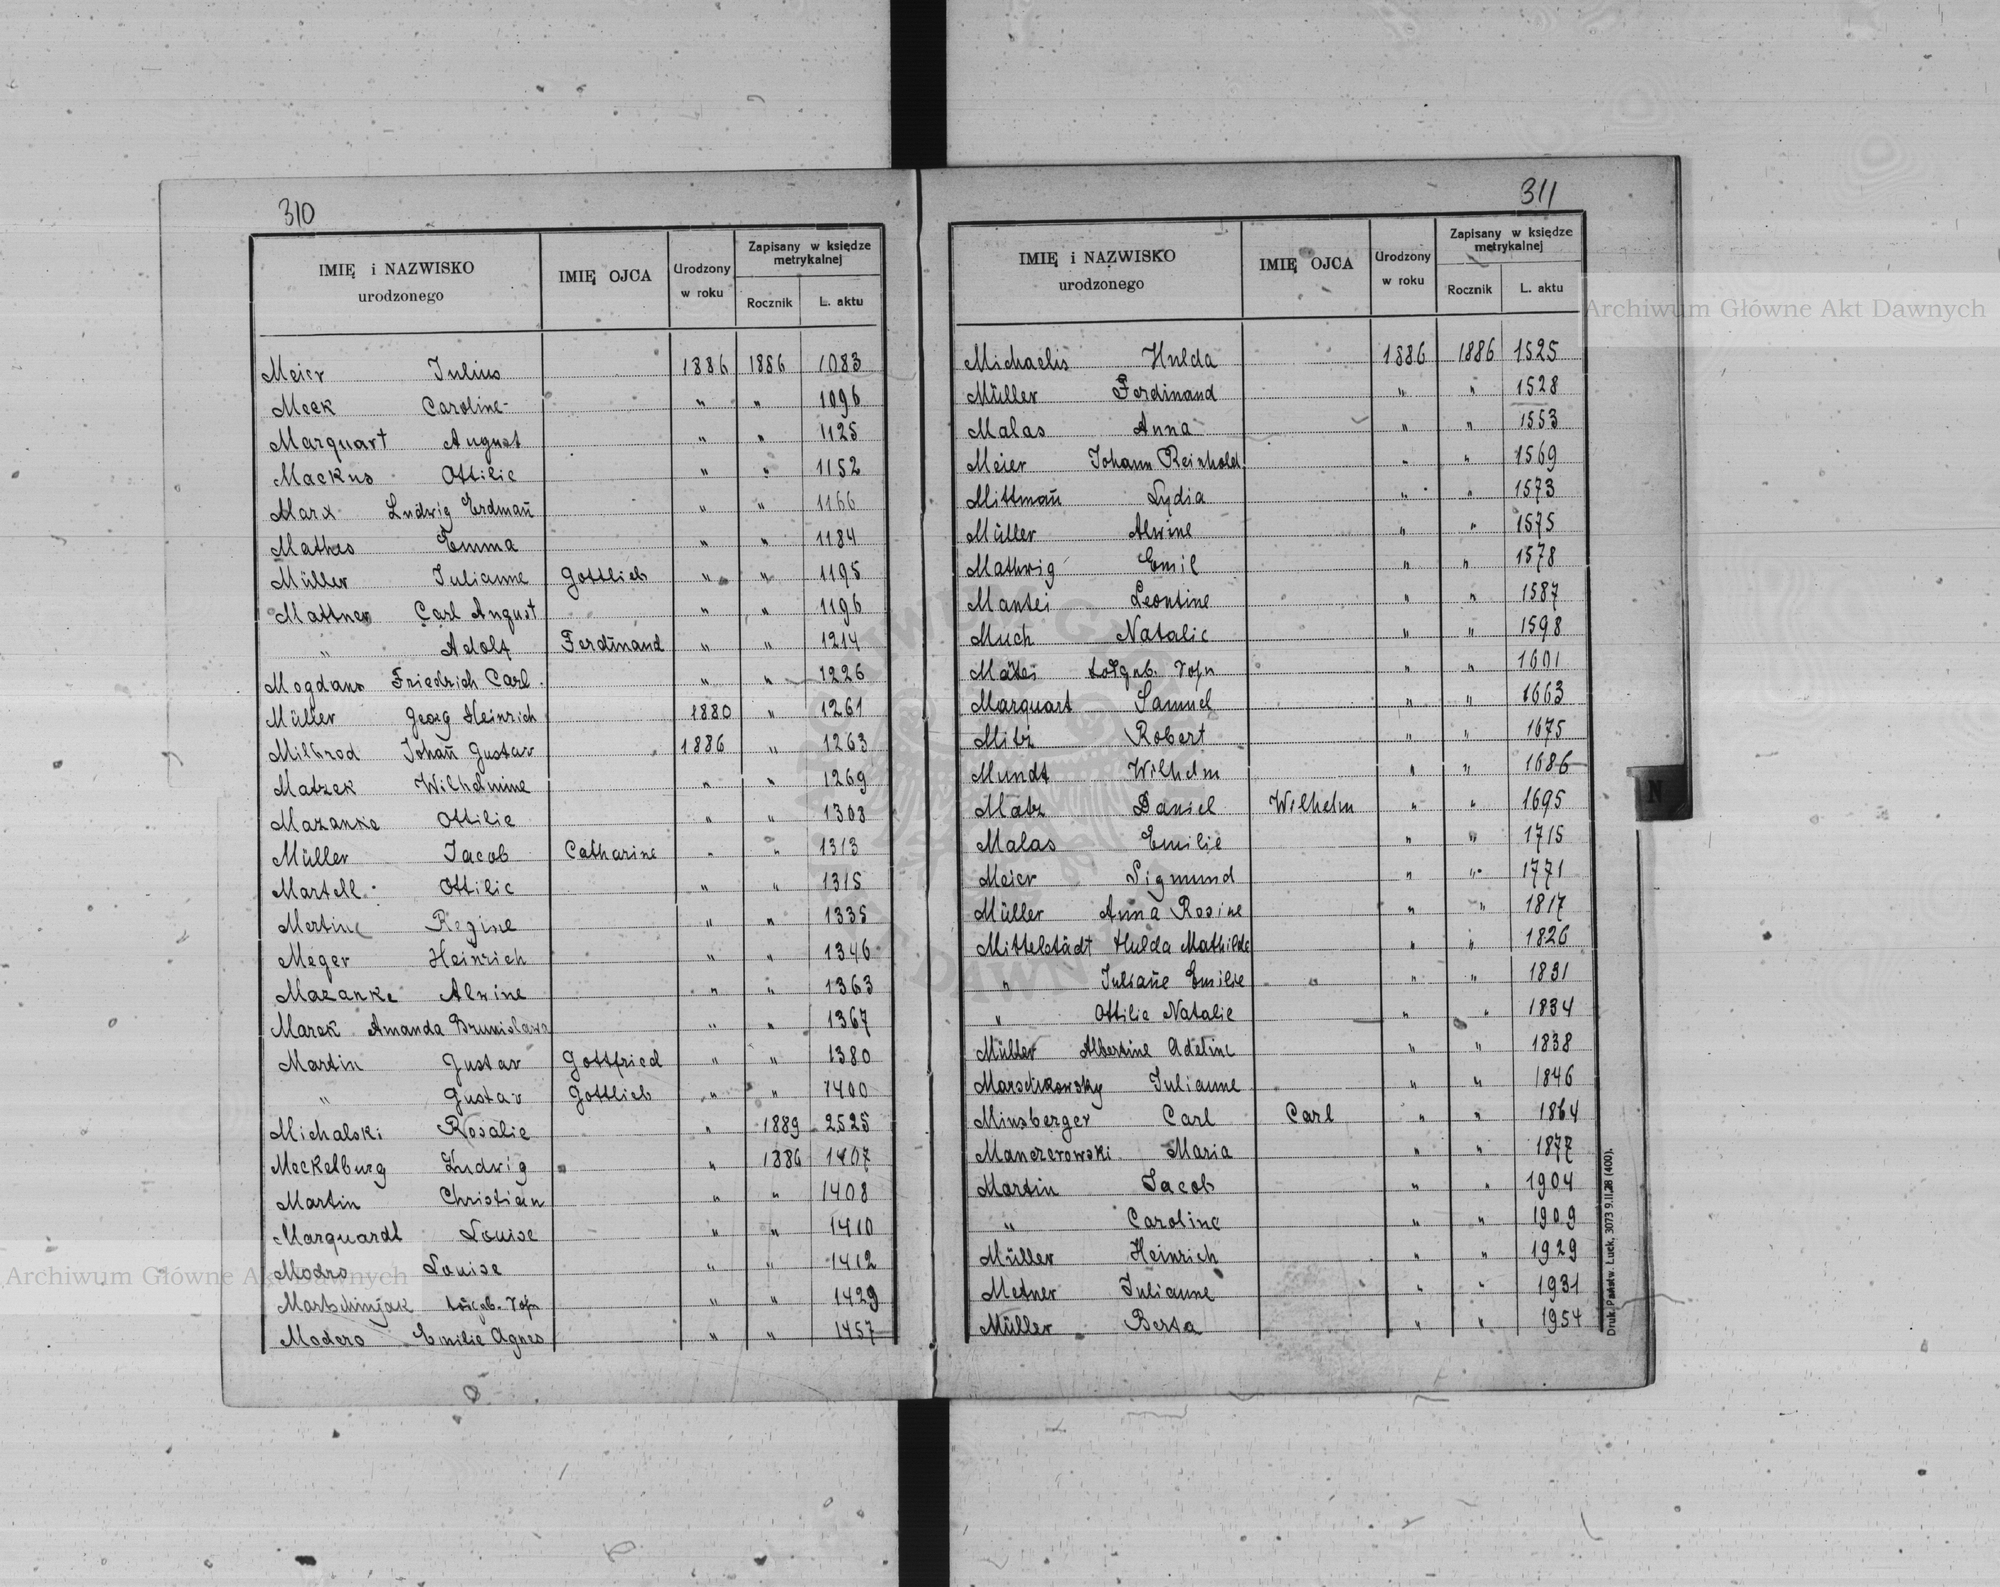 310
IMIĘ i NAZWISKO urodzonego IMIĘ OJCA Urodzony w roku Zapisany w księdze metrykalnej Rocznik L. aktu
Meier Julius 1886 1886 1083
Meek Caroline " " 1096
Marquart August " " 1125
Mackus Ottilie " " 1152
Marx Ludwig Erdmañ " " 1166
Mathes Emma " " 1184
Müller Julianne Gottlieb " " 1195
Mattner Carl August " " 1196
" Adolf Ferdinand " " 1214
Mogdans Friedrich Carl " " 1226
Müller Georg Heinrich 1880 " 1261
Milbrod Johañ Gustav 1886 " 1263
Matzek Wilhelmine " " 1269
Mazanke Ottilie " " 1308
Müller Jacob Catharine " " 1313
Martell Ottilie " " 1315
Mertine Regine " " 1335
Meger Heinrich " " 1346
Mazanke Alwine " " 1363
Marek Amanda Brunislawa " " 1367
Martin Gustav Gottfried " " 1380
" Gustav Gottlieb " " 1400
Michalski Rosalie " 1889 2525
Meckelburg Ludwig " 1886 1407
Martin Christian " " 1408
Marquardt Louise " " 1410
Modro Louise " " 1412
Martschinjak " " 1429
Modero Emilie Agnes " " 1457
311
IMIĘ i NAZWISKO urodzonego IMIĘ OJCA Urodzony w roku Zapisany w księdze metrykalnej Rocznik L. aktu
Michaelis Hulda 1886 1886 1525
Müller Ferdinand " " 1528
Malas Anna " " 1553
Meier Johann Reinhold " " 1569
Mittmañ Lydia " " 1573
Müller Alwine " " 1575
Mathwig Emil " " 1578
Mantei Leontine " " 1587
Much Natalie " " 1598
" " 1601
Marquart Samuel " " 1663
Mitz Robert " " 1675
Mundt Wilhelm " " 1686
Matz Daniel Wilhelm " " 1695
Malas Emilie " " 1715
Meier Sigmund " " 1771
Müller Anna Rosine " " 1817
Mittelstädt Hulda Mathilde " " 1826
" Juliañe Emilie " " 1831
" Ottilie Natalie " " 1834
Müller Albertine Adeline " " 1838
Julianne " " 1846
Minsberger Carl Carl " " 1864
Manczerowski Maria " " 1877
Martin Jacob " " 1904
" Caroline " " 1909
Müller Heinrich " " 1929
Metner Julianne " " 1931
Müller Berta " " 1954
N
Druk. Państw. Łuck, 3073 9.II.28 (400).
Archiwum Główne Akt Dawnych
Archiwum Główne Akt Dawnych